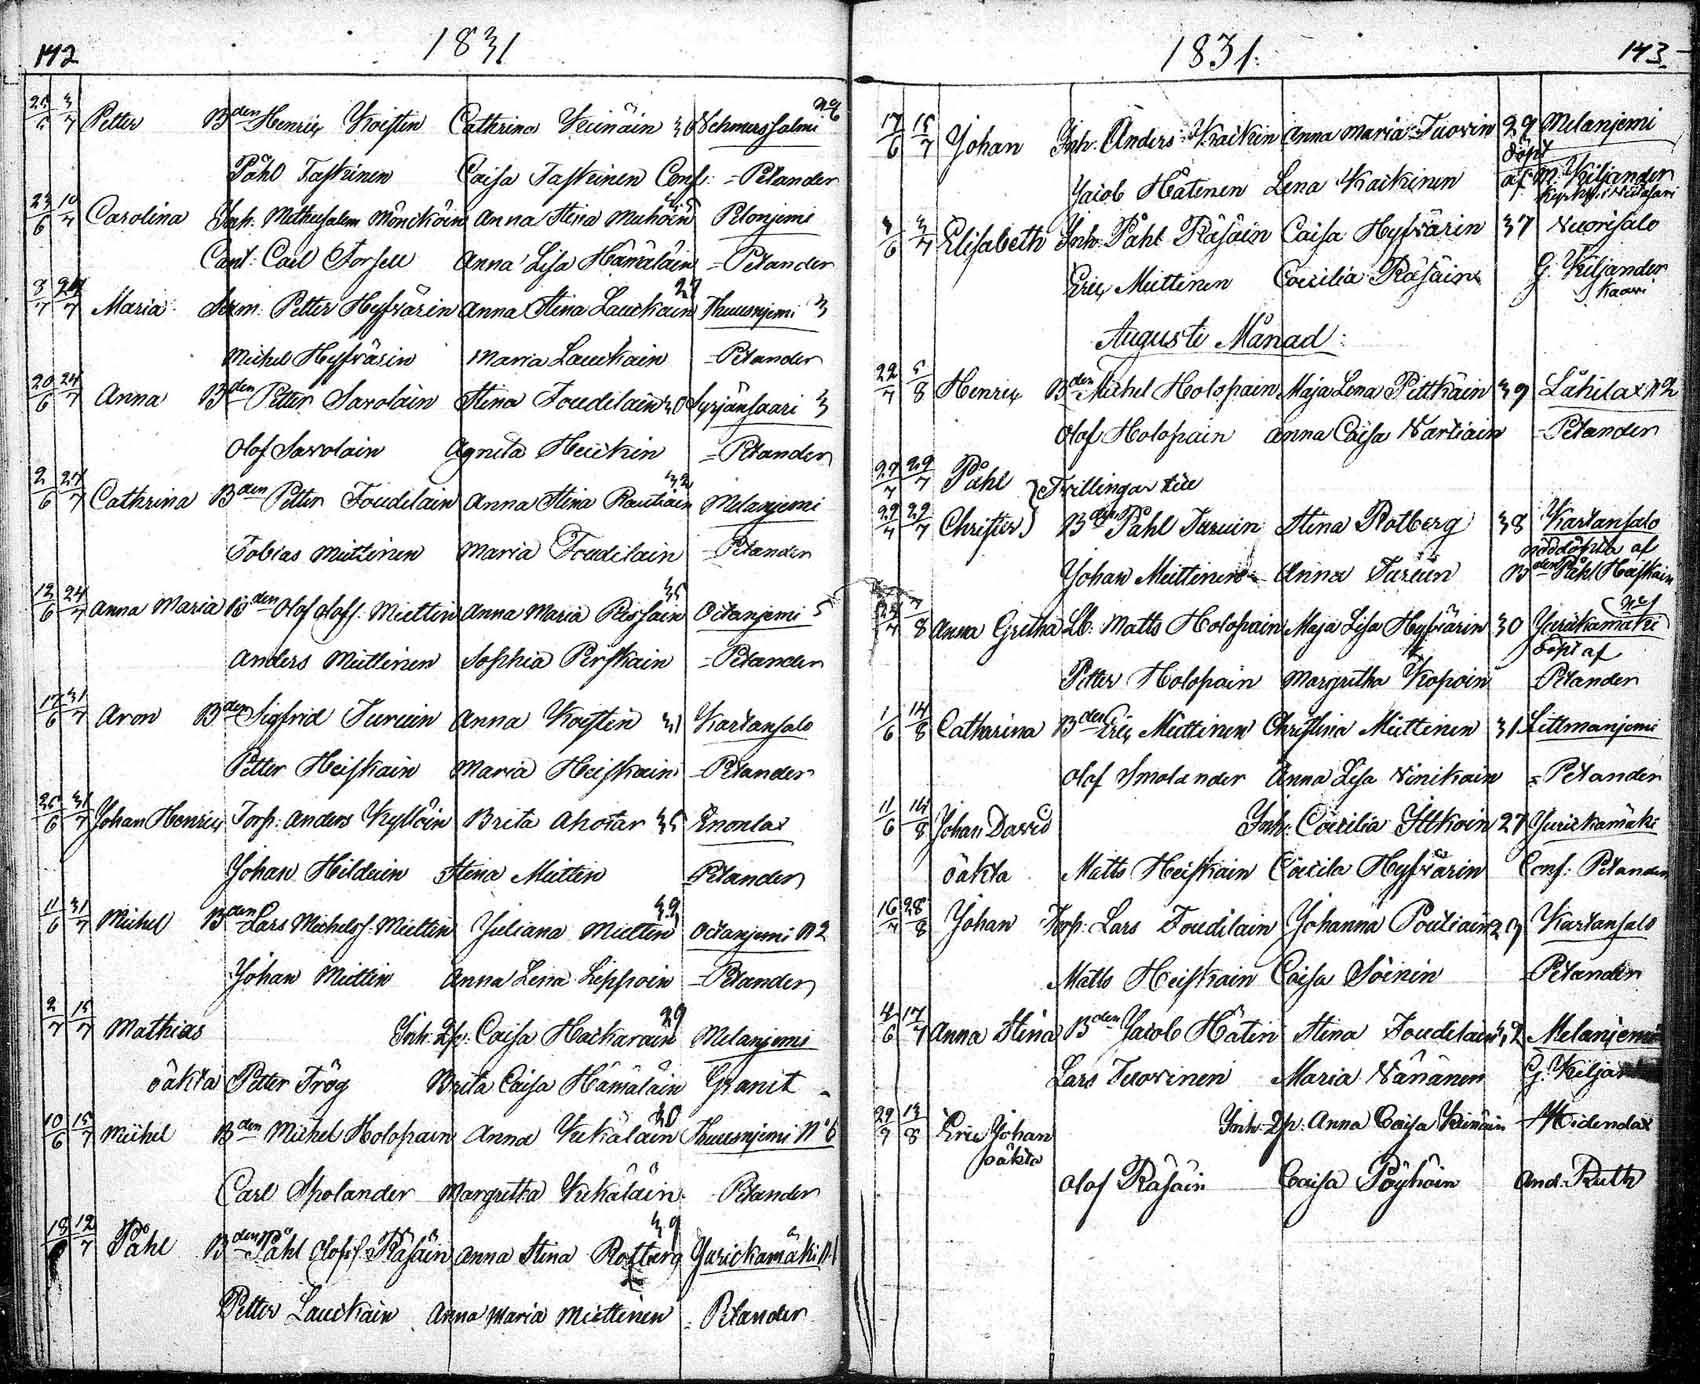 142
1831
25/5 3/7 Petter Bden Henric Koistin Cathrina Kiinäin 36 Vehmersalmi 26
Påhl Taskinen Caisa Taskinen Conf: = Petander
23/6 10/7 Carolina Inh: Methusalem Möncköin Anna Stina Muhöin Petonjemi
Cant: Carl Forsell Anna Lisa Hämäläin = Petander
3/7 Maria Petter Hyfvärin Anna Stina Lauckain 27 Kuusnjemi 3
Michel Hyfvärin Maria Lauckain = Petander
20/6 24/7 Anna Bden Petter Savolain Stina Foudilain 30 Syrjänsaari 3
Olof Savolain Agneta Heickin = Petander
2/6 24/7 Cathrina Bden Petter Foudilain Anna Stina Rautiain 32 Melanjemi
Tobias Miettinen Maria Foudilain = Petander
12/6 24/7 Anna Maria Bden Olof Olofs: Miettin Anna Maria 35 Oitanjemi 5
Anders Miettinen Sophia Perskain = Petander
17/6 31/7 Aron Bden Sigfrid Turuin Anna Koistin 31 Kartansalo
Petter Heiskain Maria Heiskain = Petander
25/6 31/7 Johan Henric Torp: Anders Kyllöin Brita Ahotar 35 Enonlax
Johan Hilduin Stina Miettin = Petander
11/6 31/7 Michel Bden Lars Michelss: Miettin Juliana Miettin 39 Oitanjemi N 2
Johan Miettin Anna Lena Leppoin = Petander
2/7 15/7 Mathias Inh: Caisa Hackarain 29 Melanjemi
oäkta Petter Trög Brita Caisa Hämäläin Granit
10/6 15/7 Michel Bden Michel Holopain Anna Kekäläin 30 Kuusnjemi N 6
Carl Spolander Margretha Kekäläin = Petander
18/ 12/7 Påhl Bden Påhl Olofs: Räsäin Anna Stina Rotberg 39 Jurickamäki N 1
Petter Lauckain Anna Maria Miettinen = Petander
1831.
143.
17/6 15/7 Johan Inh: Anders Kaickin Anna Maria Tuovin 29 Melanjemi
döpt
Jacob Hätenen Lena Kaikinen af M: Kiljander
3/6 3/7 Elisabeth Inh: Påhl Räsäin Caisa Hyfvärin 37 Vuorisalo
Eric Miettinen Cecilia Räsäin G: Kiljander
i Kaavi
Auguste Månad:
22/7 5/8 Henric Bden Michel Holopain Maja Lena Pittkäin 39 Låhilax N 2
Olof Holopain Anna Caisa Vartiain = Petander
27/7 29/7 Påhl } Tvillingar till
27/7 29/7 Christer } Bden Påhl Turuin Stina Rotberg 38 Kartansalo
nöddöpta af
Johan Miettinen Anna Turuin Bden Påhl Heiskain
/8 Anna Gretha Lb: Matts Holopain Maja Lisa Hyfvärin 30 Jurickamäki N 1
döpt af
Petter Holopain Margretha Kopoin Petander
1/6 14/8 Catharina Bden Eric Miettinen Christina Miettinen 31 Littmanjemi
Olof Smolander Anna Lisa Vinikain = Petander
11/6 14/8 Johan David Inh: Cecilia Ittkoin 27 Jurickamäki
oäkta Matts Heiskain Cecilia Hyfvärin Conf: Petander
16/7 28/8 Johan Torp: Lars Foudilain Johanna Poutiain 29 Kartansalo
Matts Heiskain Caisa Soinin = Petander
4/6 17/7 Anna Stina Bden Jacob Hätin Stina Foudilain 32 Melanjemi
Lars Tuovinen Maria Vänänen G: Kiljander
29/7 13/8 Eric Johan Inh: Anna Caisa Kiinäin
oäkta
Olof Räsäin Caisa Pöyhöin And: Ruth